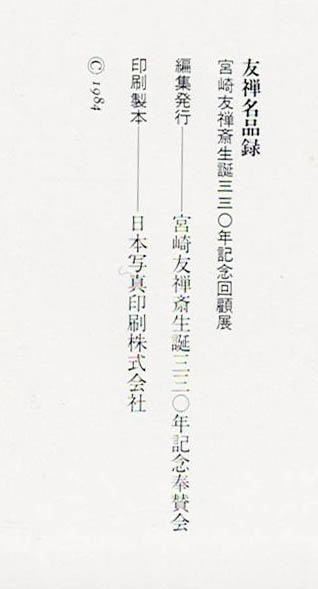 友禅名品録
宮崎友禅斎生誕三三〇年記念回顧展
編集発行――宮崎友禅斎生誕三三〇年記念奉賛会
印刷製本――日本写真印刷株式会社
© 1984